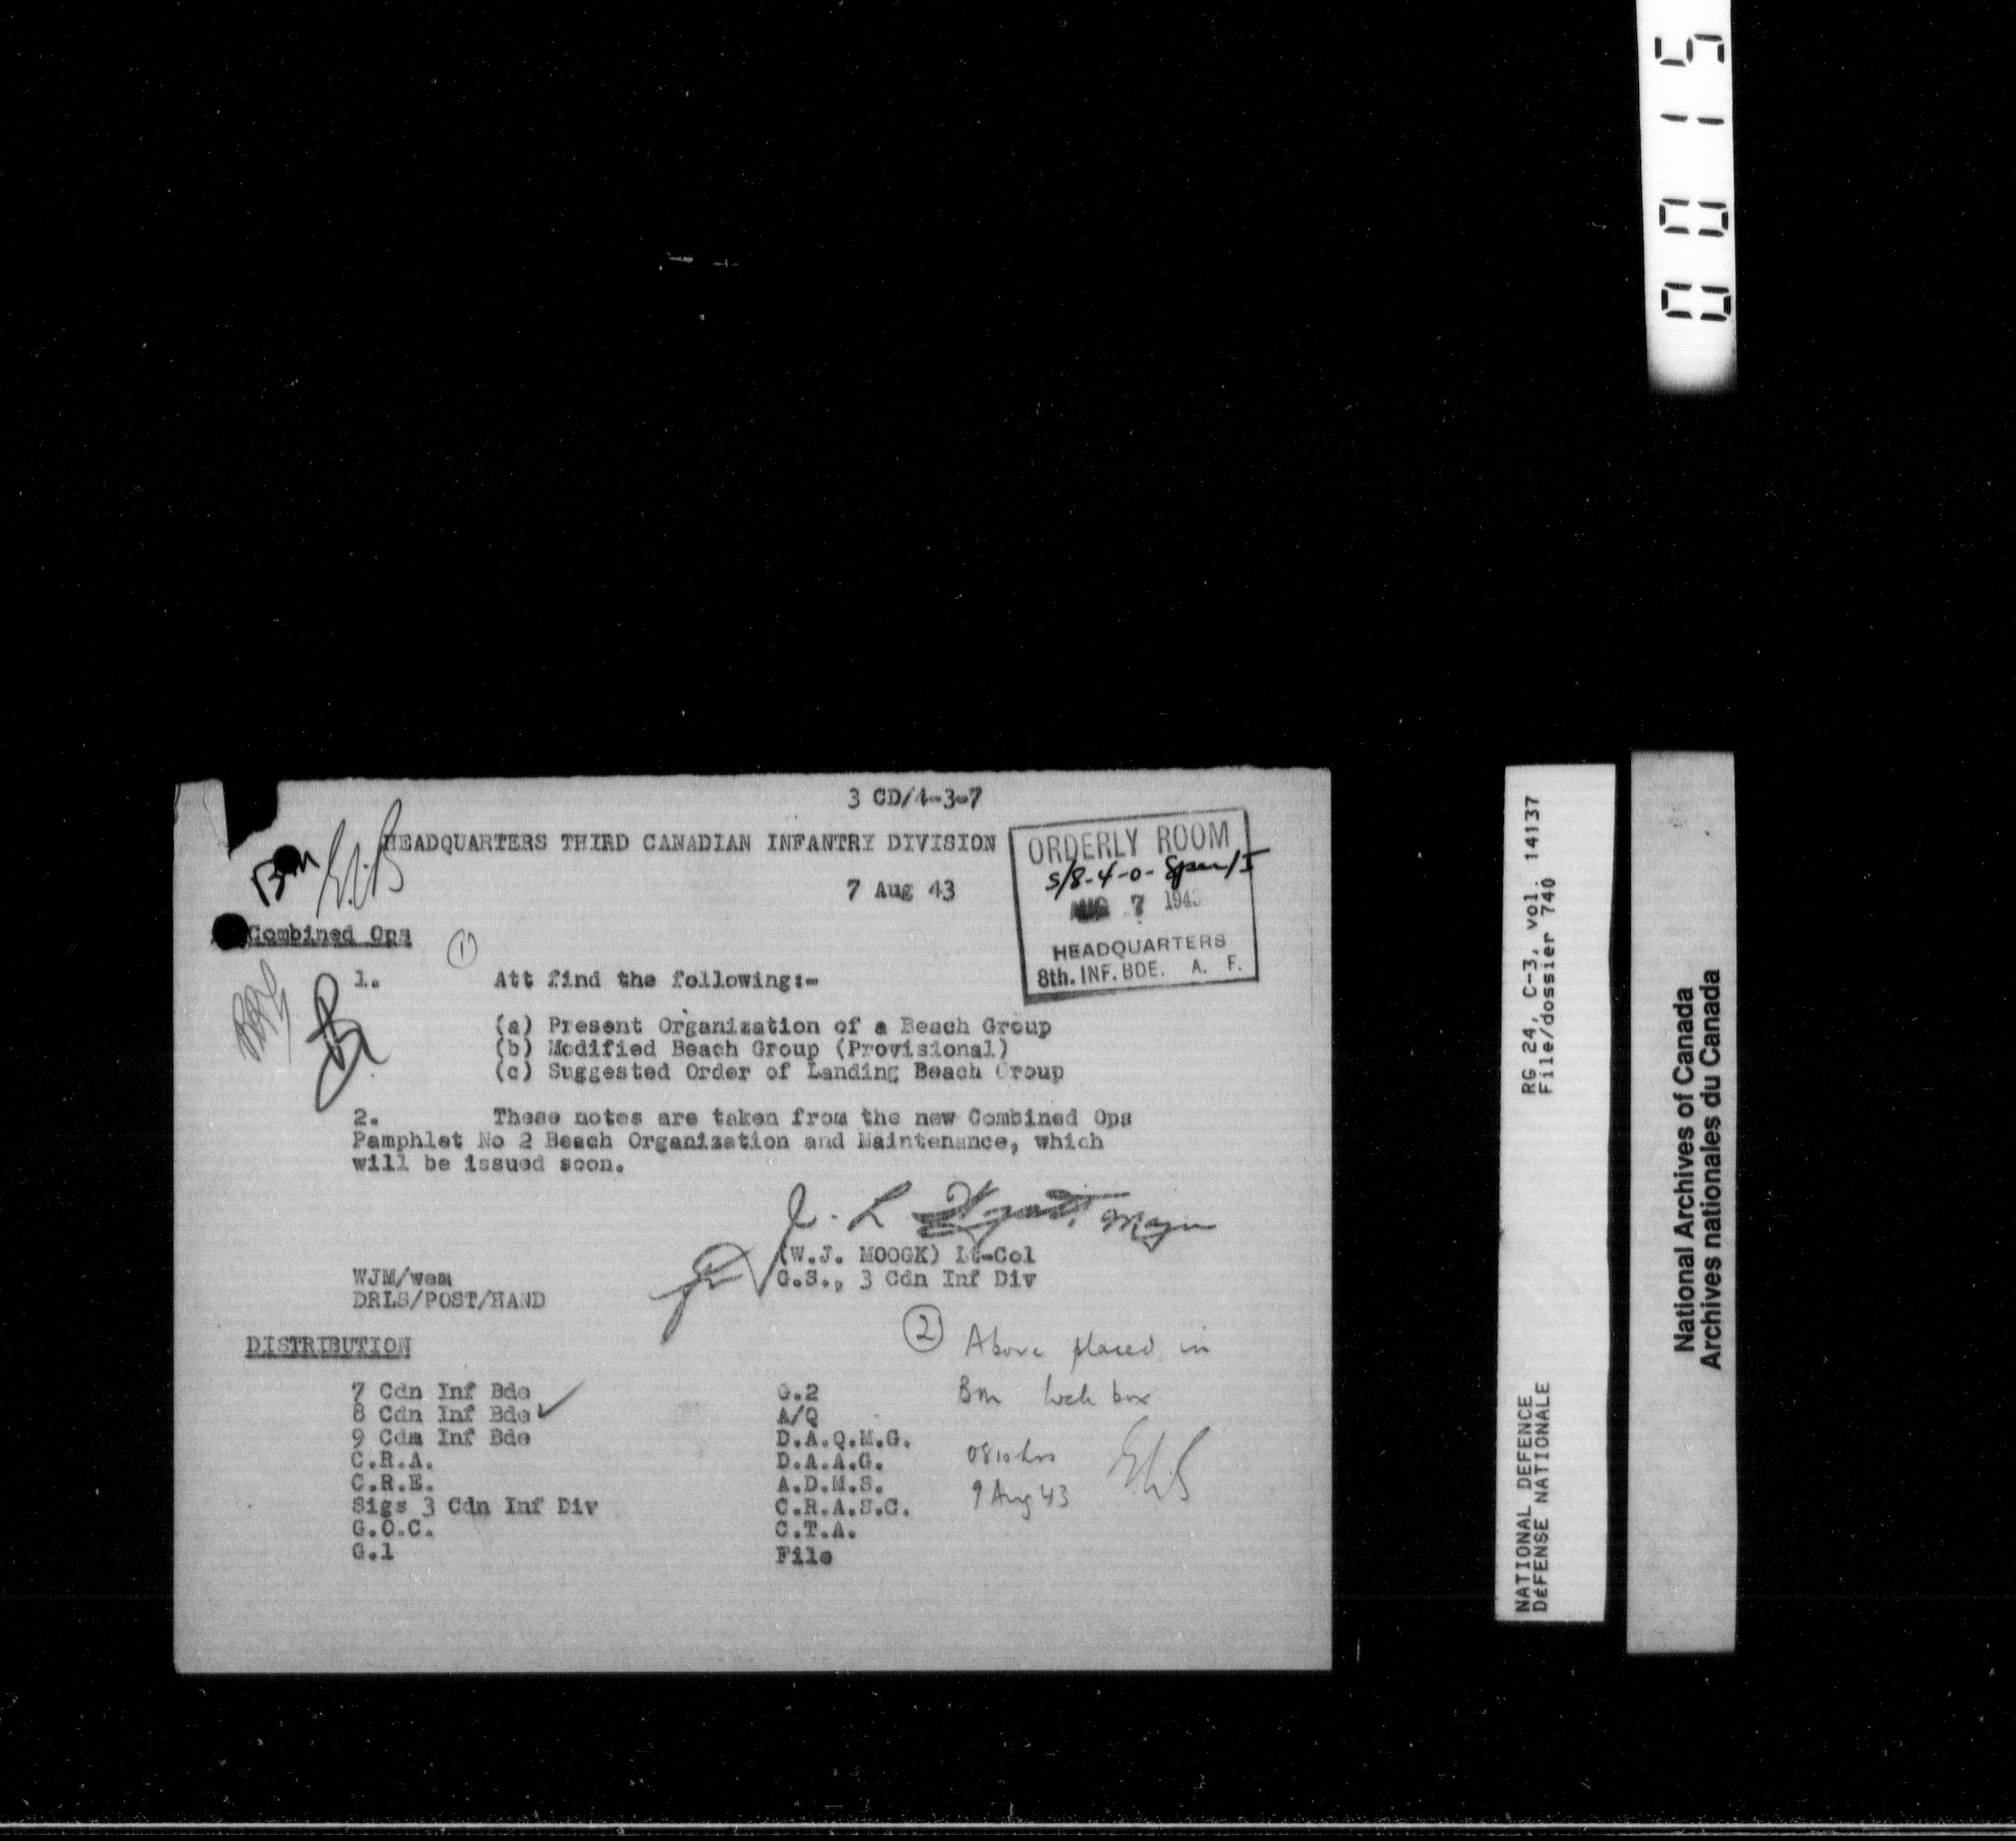 0015
3 CD/4-3-7
HEADQUARTERS THIRD CANADIAN INFANTRY DIVISION
7 Aug 43
ORDERLY ROOM
S/8-4-0-
AUG 7 1943
HEADQUARTERS
8th. INF. BDE. A. F.
Bm
Combined Ops
1
1. Att find the following:-
(a) Present Organization of a Beach Group
(b) Modified Beach Group (Provisional)
(c) Suggested Order of Landing Beach Group
2. These notes are taken from the new Combined Ops
Pamphlet No 2 Beach Organization and Maintenance, which
will be issued soon.
(W.J. MOOGK) Lt-Col
G.S., 3 Cdn Inf Div
WJM/wem
DRLS/POST/HAND
DISTRIBUTION
7 Cdn Inf Bde
8 Cdn Inf Bde ✓
9 Cdn Inf Bde
C.R.A.
C.R.E.
Sigs 3 Cdn Inf Div
G.O.C.
G.1
G.2
A/Q
D.A.Q.M.G.
D.A.A.G.
A.D.M.S.
C.R.A.S.C.
C.T.A.
File
2 Above placed in
Bm box
0810 hrs
9 Aug 43
RG 24, C-3, vol. 14137
File/dossier 740
NATIONAL DEFENCE
DéFENSE NATIONALE
National Archives of Canada
Archives nationales du Canada